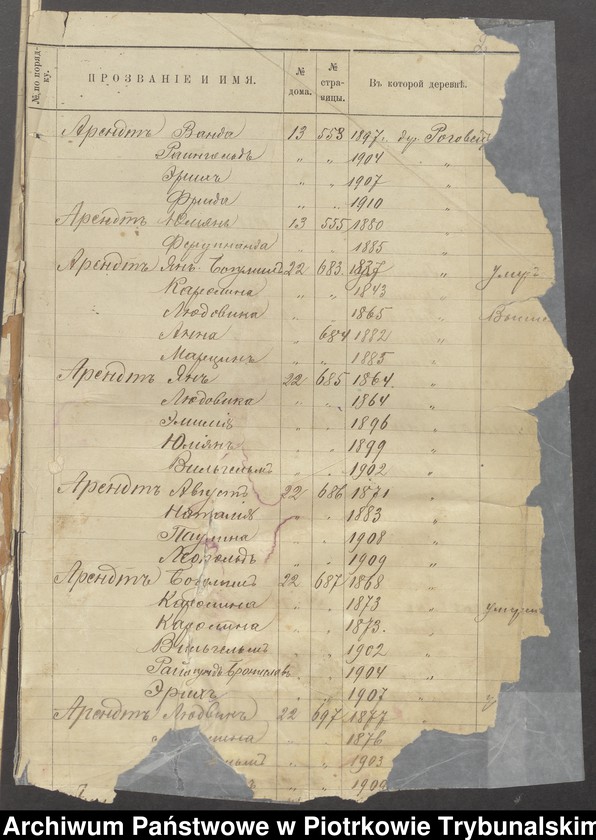 № по порядку. ПРОЗВАНІЕ И ИМЯ. № дома. № страницы. Въ которой деревнѣ.
Арендтъ Ванда 13 553 1897 г. д.
Рейнгольдъ „ „ 1904 „
Эрихъ „ „ 1907 „
Фрида „ „ 1910 „
Арендтъ Юліянъ 13 555 1880 „
Фердинанда „ „ 1885 „
Арендтъ Янъ Богумилъ 22 683 1837 „
Каролина „ „ 1843 „
Людовика „ „ 1865 „
Анна „ 684 1882 „
Марцинъ „ „ 1885
Арендтъ Янъ 22 685 1864. „
Людовика „ „ 1864 „
Эмилія „ „ 1896 „
Юліянъ „ „ 1899 „
Вильгельмъ „ „ 1902 „
Арендтъ Августъ 22 686 1871 „
Наталія „ „ 1883 „
Паулина „ „ 1908 „
Леопольдъ „ „ 1909 „
Арендтъ Богумилъ 22 687 1868 „
Каролина „ „ 1873 „
Каролина „ „ 1873. „
Вильгельмъ „ „ 1902 „
Брониславъ „ „ 1904 „
Эрихъ „ „ 1907 „
Арендтъ Людвикъ 22 697 1877 „
„ „ 1876 „
„ „ 1903
Archiwum Państwowe w Piotrkowie Trybunalskim